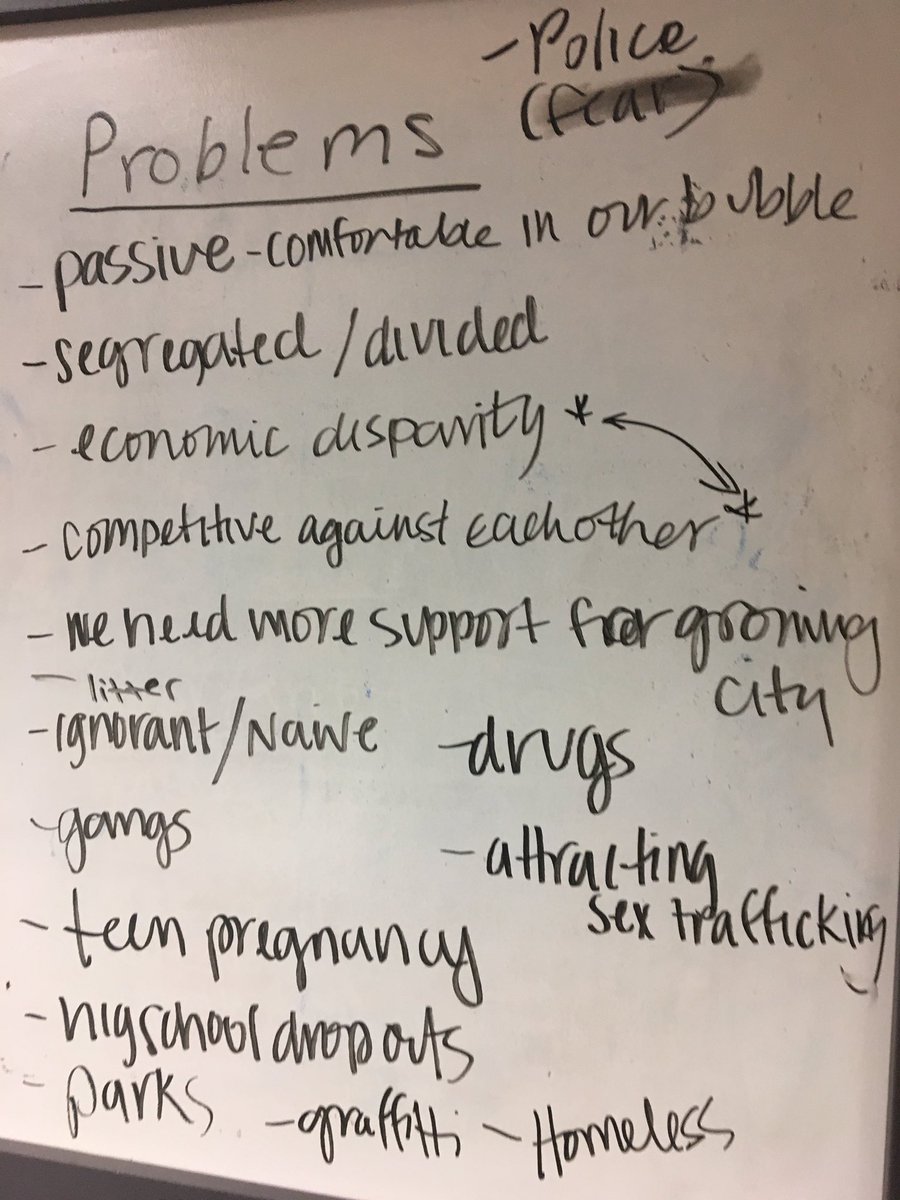 - Police
(fear)
Problems
- passive - comfortable in our bubble
- segregated / divided
- economic disparity *
- competitive against eachother *
- we need more support for growing
city
- litter
- ignorant/Naive
- drugs
- gangs
- attracting
sex trafficking
- teen pregnancy
- higschool drop outs
- parks - graffitti - Homeless